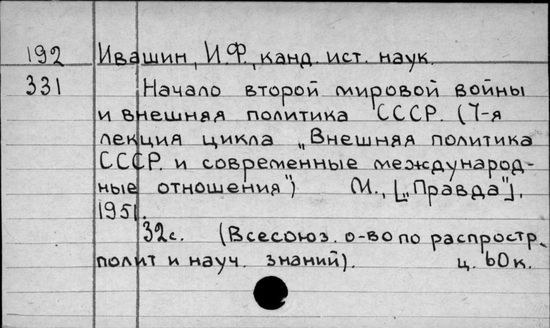 192 Ивашин, И.Ф., канд. ист. наук.
331 Начало второй мировой войны
и внешняя политика СССР. (7-я
лекция цикла „Внешняя политика
СССР. и современные международ-
ные отношения") М., [„Правда"],
1951.
32с. (Всесоюз. о-во по распростр.
полит и науч. знаний). ц. 60к.